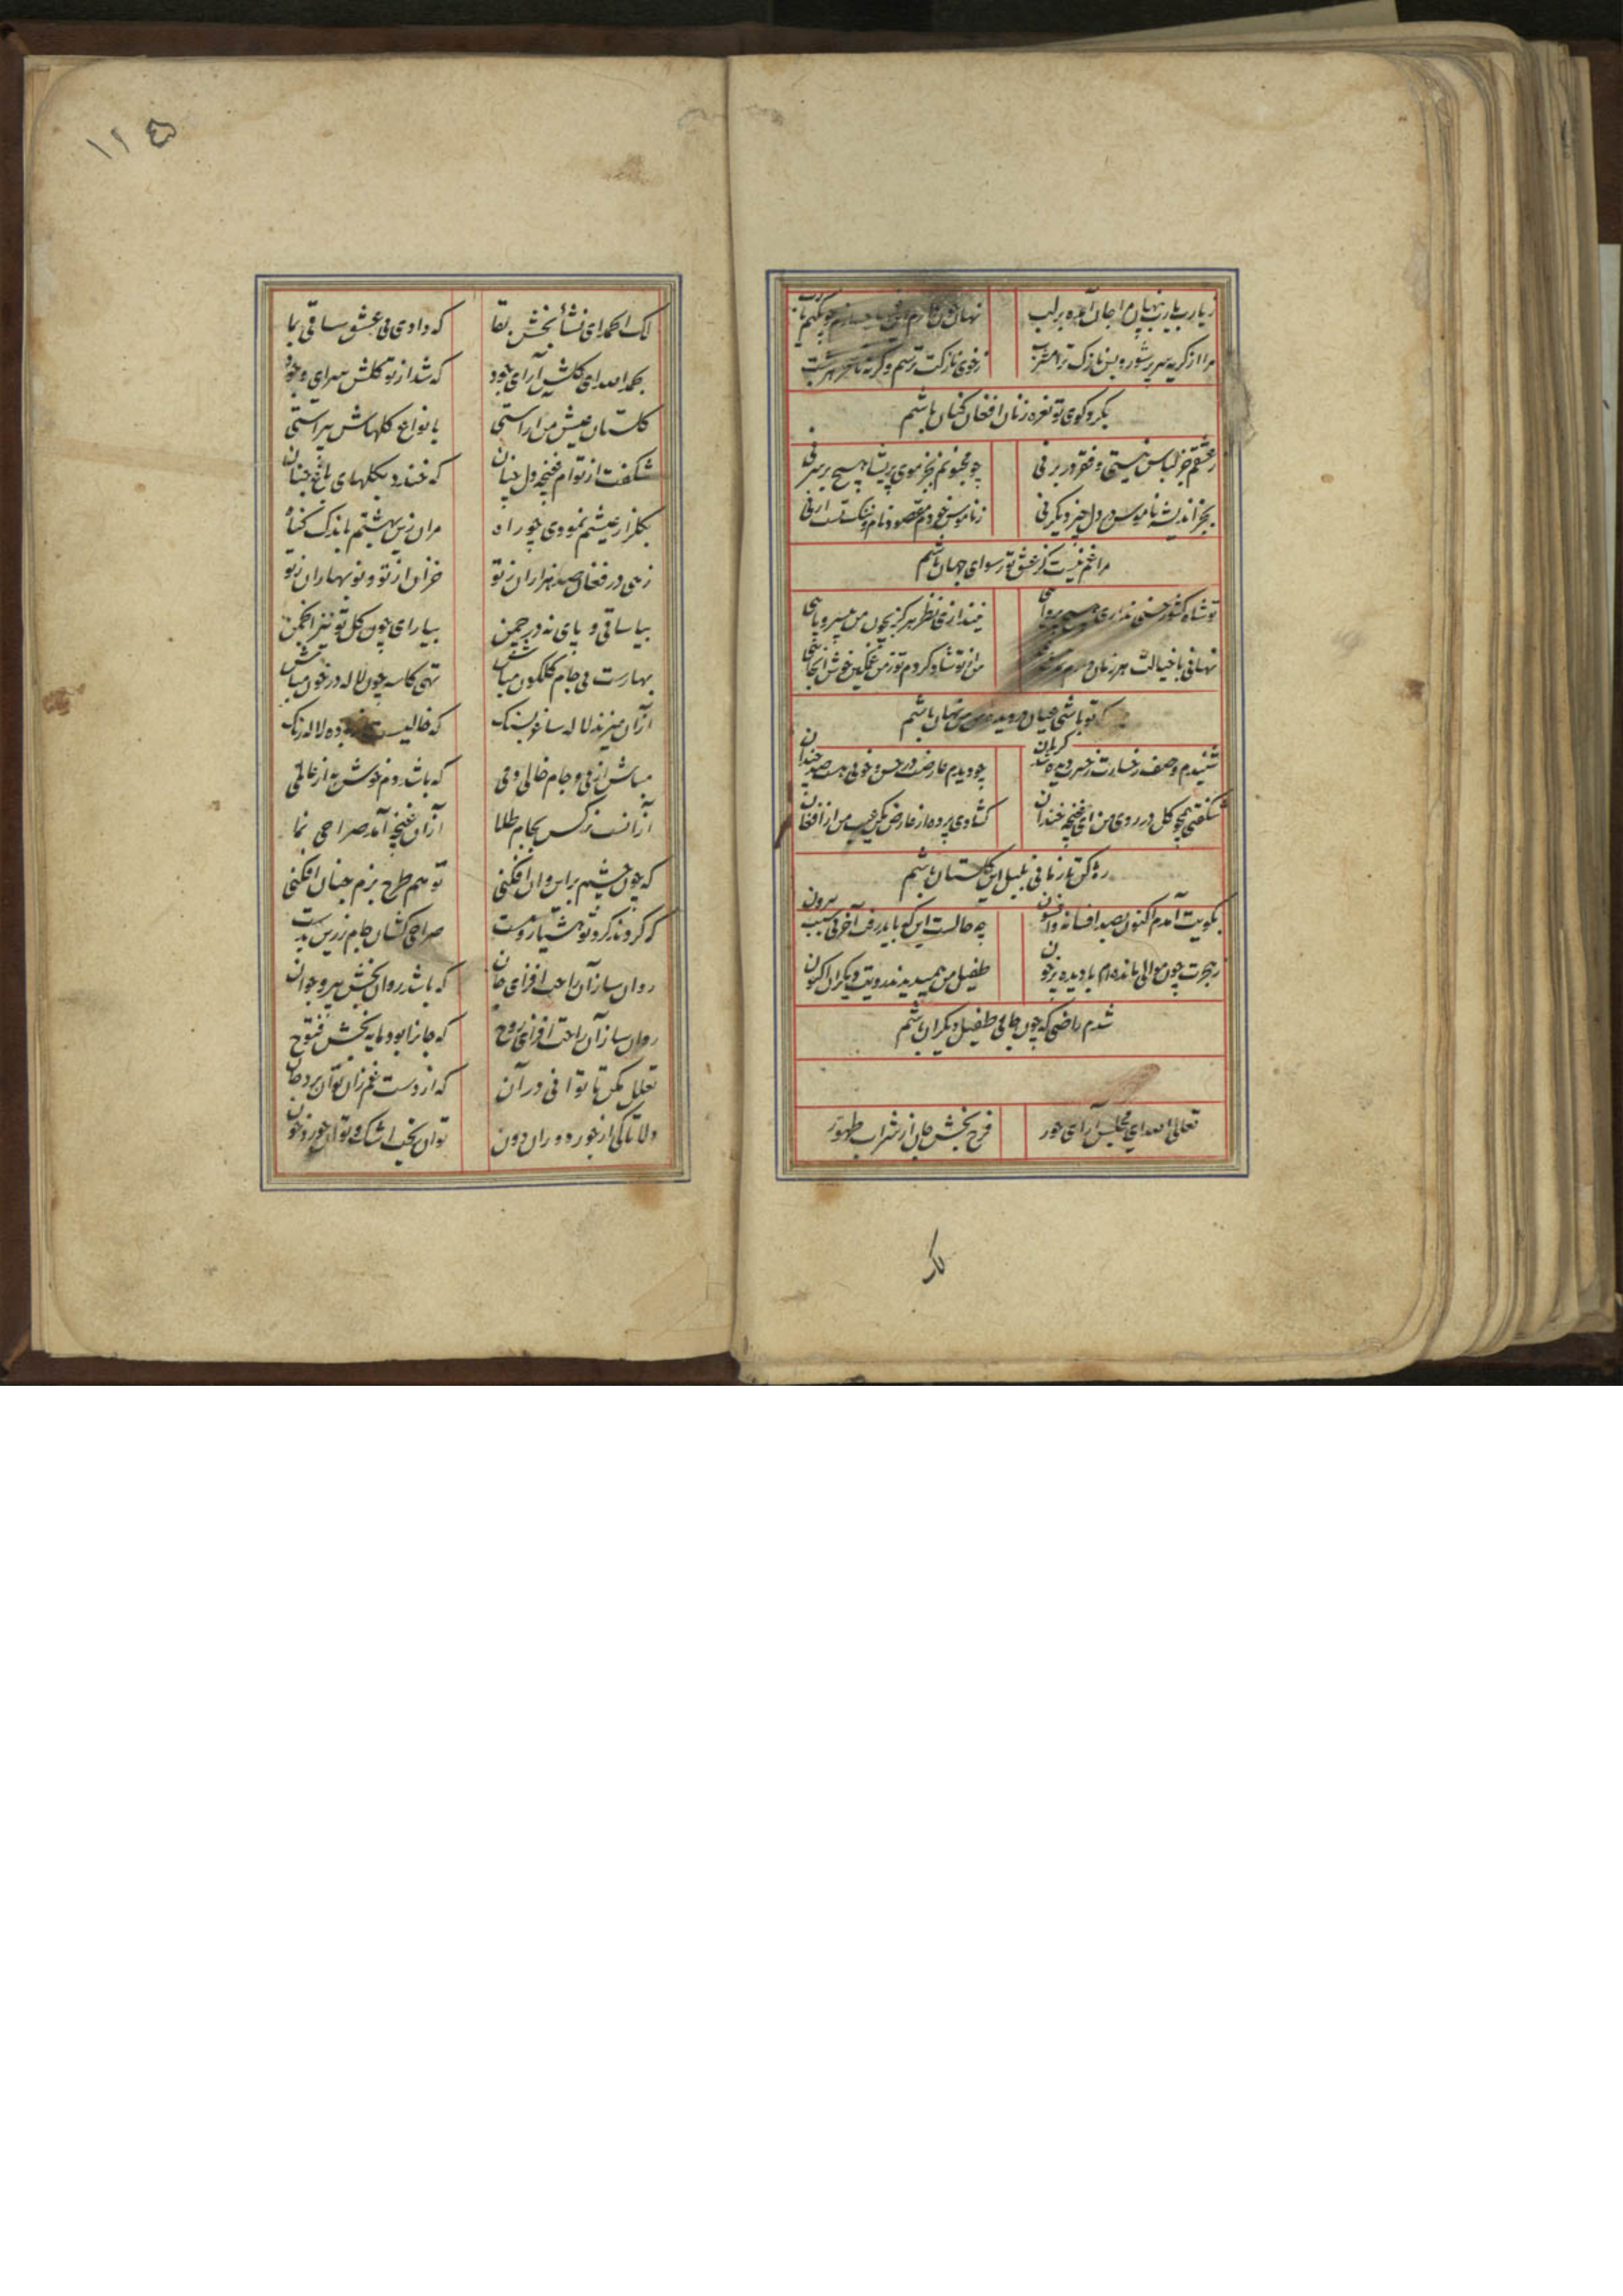 ز یارب یارب پنهان مرا جان آمده بر لب نهان چون دارم
مرا از گریه سر پر شور و بس نازک ترا مشرب ز خوی نازکت ترسم وگرنه تا سحر هر شب
بگرد کوی تو نعره زنان افغان کنان باشم
ز عشقم جز لباس نیستی و فقر در بر نی چو مجنونم بجز موی پریشان هیچ بر سر نی
بجز اندیشه ناموس در دل چیز دیگر نی ز ناموس خودم مقصود نام و ننگ تست ار نی
مرا غم نیست کز عشق تو رسوای جهان باشم
تو شاه کشور حسنی نداری هیچ پروایی نیندازی نظر هرگز بچون من بیسر و پایی
نهانی با خیالت هر زمان دارم من از تو شاد کردم تو ز من غمگین خوش آنجایی
که تو باشی عیان در دیده من نهان باشم
شنیدم وصف رخسارت ز حسرت دیده شد گریان چو دیدم عارضت در حسن و خوبی هست صد چندان
شکفتی همچو گل در روی من ای غنچه خندان گشادی پرده از عارض مکن عیب من از افغان
رها کن تا زمانی بلبل این گلستان باشم
بکویت آمدم اکنون بصد افسانه و افسون چه حالست این که باید رفت آخر بی سبب بیرون
ز هجرت چون موالی مانده ام با دیده پر خون طفیل من همیدیدند رویت دیگران اکنون
شدم راضی که چون جامی طفیل دیگران باشم
تعالی الله ای مجلس آرای حور فرح بخش جان از شراب طهور
لک
۱۲۵
لک الحمد ای نشأ بخش بقا که دادی می عشق ساقی بما
بحمد الله ای گلشن آرای جود که شد از تو گلشن سرای وجود
گلستان عیش من آراستی بانواع گلهاش پیراستی
شکفت از توام غنچه دل چنان که خندد بگلهای باغ جنان
بگلزار عیشم نمودی چو راه مران زین بهشتم باندک گناه
زهی در فغان صد هزاران ز تو خزان از تو و نوبهاران ز تو
بیا ساقی و پای نه در چمن بیارای چون گل تو نیز انجمن
بهارست بی جام گلگون مباش تهی کاسه چون لاله در خون مباش
از آن میزند لاله ساغر بسنگ که خالیست باده لاله رنگ
مباش از می و جام خالی دمی که باشد دم خوش به از عالمی
از آنست نرگس بجام طلا از آن غنچه آمد صراحی نما
که چون چشم بر این و آن افکنی تو هم طرح بزم چنان افکنی
که گردند گرد تو هشیار و مست صراحی کشان جام زرین بدست
روان ساز آن راحت افزای جان که باشد روان بخش پیر و جوان
روان ساز آن راحت افزای روح که جانرا بود مایه بخش فتوح
تعلل مکن تا توانی در آن که از دست غم زان توان برد جان
دلا تا کی از جور دوران دون توان